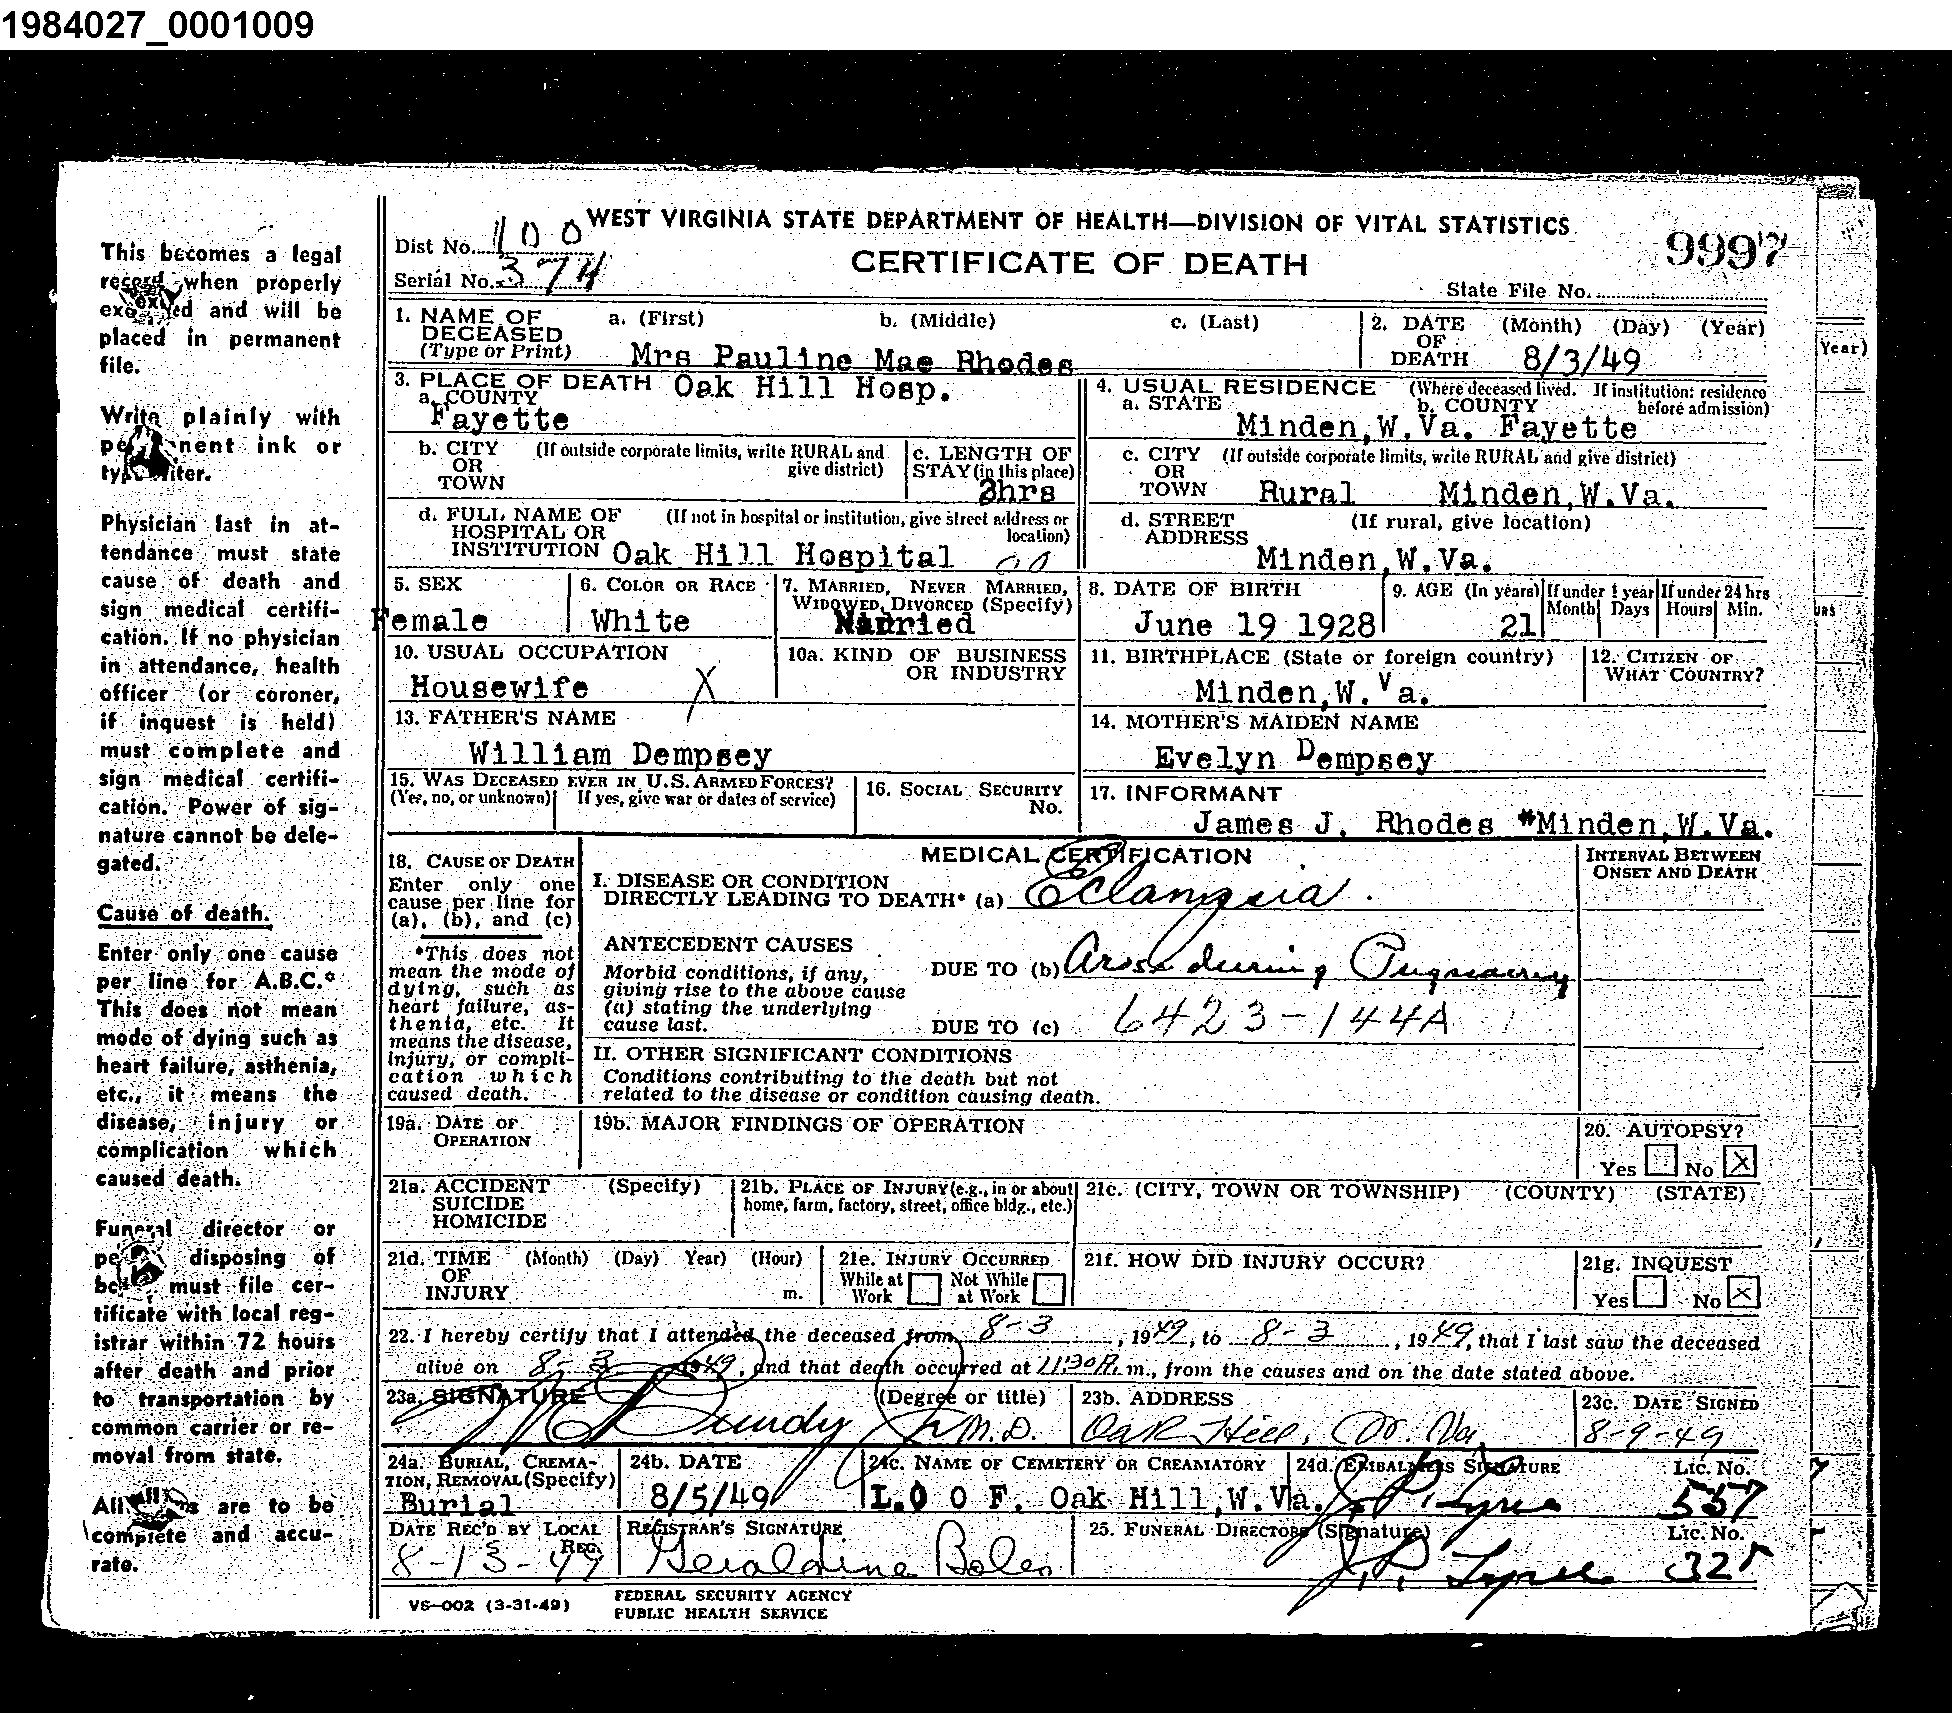 1984027_0001009
This becomes a legal
record when properly
and will be
placed in permanent
file.
Write plainly with
ink or
Physician last in at-
tendance must state
cause of death and
sign medical certifi-
cation. If no physician
in attendance, health
officer (or coroner,
if inquest is held)
must complete and
sign medical certifi-
cation. Power of sig-
nature cannot be dele-
gated.
Cause of death.
Enter only one cause
per line for A.B.C.*
This does not mean
mode of dying such as
heart failure, asthenia,
etc., it means the
disease, injury or
complication which
caused death.
Funeral director or
disposing of
must file cer-
tificate with local reg-
istrar within 72 hours
after death and prior
to transportation by
common carrier or re-
moval from state.
All are to be
complete and accu-
rate.
WEST VIRGINIA STATE DEPARTMENT OF HEALTH—DIVISION OF VITAL STATISTICS
Dist No. 100
CERTIFICATE OF DEATH
9997
Serial No. 374
State File No.
1. NAME OF DECEASED (Type or Print) a. (First) b. (Middle) c. (Last)
Mrs Pauline Mae Rhodes
2. DATE OF DEATH (Month) (Day) (Year)
8/3/49
Year)
3. PLACE OF DEATH Oak Hill Hosp.
a. COUNTY
Fayette
4. USUAL RESIDENCE (Where deceased lived. If institution: residence before admission)
a. STATE b. COUNTY
Minden,W.Va. Fayette
b. CITY OR TOWN (If outside corporate limits, write RURAL and give district)
c. LENGTH OF STAY (in this place)
hrs
c. CITY OR TOWN (If outside corporate limits, write RURAL and give district)
Rural Minden,W.Va.
d. FULL NAME OF HOSPITAL OR INSTITUTION (If not in hospital or institution, give street address or location)
Oak Hill Hospital 00
d. STREET ADDRESS (If rural, give location)
Minden,W.Va.
5. SEX
Female
6. COLOR OR RACE
White
7. MARRIED, NEVER MARRIED, WIDOWED, DIVORCED (Specify)
Married
8. DATE OF BIRTH
June 19 1928
9. AGE (In years)
21
If under 1 year
Month Days
If under 24 hrs
Hours Min.
10. USUAL OCCUPATION
Housewife X
10a. KIND OF BUSINESS OR INDUSTRY
11. BIRTHPLACE (State or foreign country)
Minden,W.Va.
12. CITIZEN OF WHAT COUNTRY?
13. FATHER'S NAME
William Dempsey
14. MOTHER'S MAIDEN NAME
Evelyn Dempsey
15. WAS DECEASED EVER IN U.S. ARMED FORCES?
(Yes, no, or unknown) If yes, give war or dates of service)
16. SOCIAL SECURITY No.
17. INFORMANT
James J. Rhodes *Minden,W.Va.
18. CAUSE OF DEATH
Enter only one
cause per line for
(a), (b), and (c)
*This does not
mean the mode of
dying, such as
heart failure, as-
thenia, etc. It
means the disease,
injury, or compli-
cation which
caused death.
MEDICAL CERTIFICATION
INTERVAL BETWEEN ONSET AND DEATH
I. DISEASE OR CONDITION
DIRECTLY LEADING TO DEATH* (a) Eclampsia
ANTECEDENT CAUSES
Morbid conditions, if any,
giving rise to the above cause
(a) stating the underlying
cause last.
DUE TO (b) Arose during Pregnancy
DUE TO (c) 6423-144A
II. OTHER SIGNIFICANT CONDITIONS
Conditions contributing to the death but not
related to the disease or condition causing death.
19a. DATE OF OPERATION
19b. MAJOR FINDINGS OF OPERATION
20. AUTOPSY?
Yes No X
21a. ACCIDENT SUICIDE HOMICIDE (Specify)
21b. PLACE OF INJURY (e.g., in or about home, farm, factory, street, office bldg., etc.)
21c. (CITY, TOWN OR TOWNSHIP) (COUNTY) (STATE)
21d. TIME OF INJURY (Month) (Day) Year) (Hour) m.
21e. INJURY OCCURRED
While at Work Not While at Work
21f. HOW DID INJURY OCCUR?
21g. INQUEST
Yes No X
22. I hereby certify that I attended the deceased from 8-3, 1949, to 8-3, 1949, that I last saw the deceased
alive on 8-3 1949, and that death occurred at 11:30 P. m., from the causes and on the date stated above.
23a. SIGNATURE (Degree or title)
M.D.
23b. ADDRESS
Oak Hill, W. Va.
23c. DATE SIGNED
8-9-49
24a. BURIAL, CREMATION, REMOVAL (Specify)
Burial
24b. DATE
8/5/49
24c. NAME OF CEMETERY OR CREAMATORY
I.O O F. Oak Hill,W.Va.
24d. EMBALMERS SIGNATURE Lic. No.
557
DATE REC'D BY LOCAL REG.
8-13-49
REGISTRAR'S SIGNATURE
Geraldine Boles
25. FUNERAL DIRECTORS (Signature) Lic. No.
325
VS-002 (3-31-49)
FEDERAL SECURITY AGENCY
PUBLIC HEALTH SERVICE